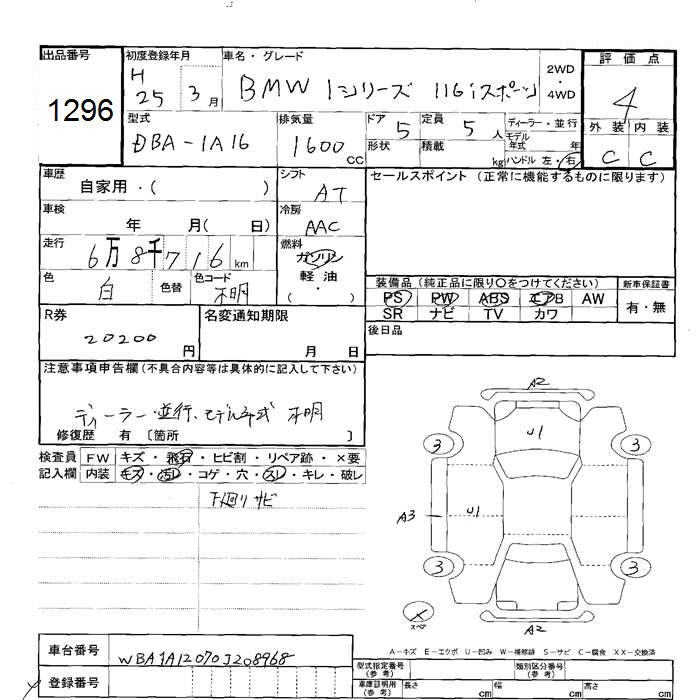 出品番号 初度登録年月 車名・グレード 評価点
1296 H 25 3月 BMW 1シリーズ 116iスポーツ 2WD・4WD 4
型式 排気量 ドア 5 定員 5人 ディーラー・並行 外装 内装
DBA-1A16 1600 CC 形状 積載 kg モデル年式 年 ハンドル 左・右 C C
車歴 自家用・( ) シフト AT セールスポイント (正常に機能するものに限ります)
車検 年 月( 日) 冷房 AAC
走行 6万8千716km 燃料 ガソリン・軽油 ( )
色 白 色替 色コード 不明
装備品 (純正品に限り〇をつけてください) 新車保証書
PS PW ABS エアB AW 有・無
SR ナビ TV カワ
R券 20200円 名変通知期限 月 日 後日品
注意事項申告欄(不具合内容等は具体的に記入して下さい)
ディーラー・並行、モデル年式 不明
修復歴 有 〔箇所 〕
検査員 FW キズ・飛石・ヒビ割・リペア跡・×要
記入欄 内装 キズ・汚レ・コゲ・穴・スレ・キレ・破レ
下廻りサビ
A2
U1
3 3
A3 U1
3 3
X
スペア
A2
A-キズ E-エクボ U-凹み W-補修跡 S-サビ C-腐食 XX-交換済
車台番号 WBA1A12070J208968
登録番号
型式指定番号(参考) 類別区分番号(参考)
車庫証明用(参考) 長さ cm 幅 cm 高さ cm